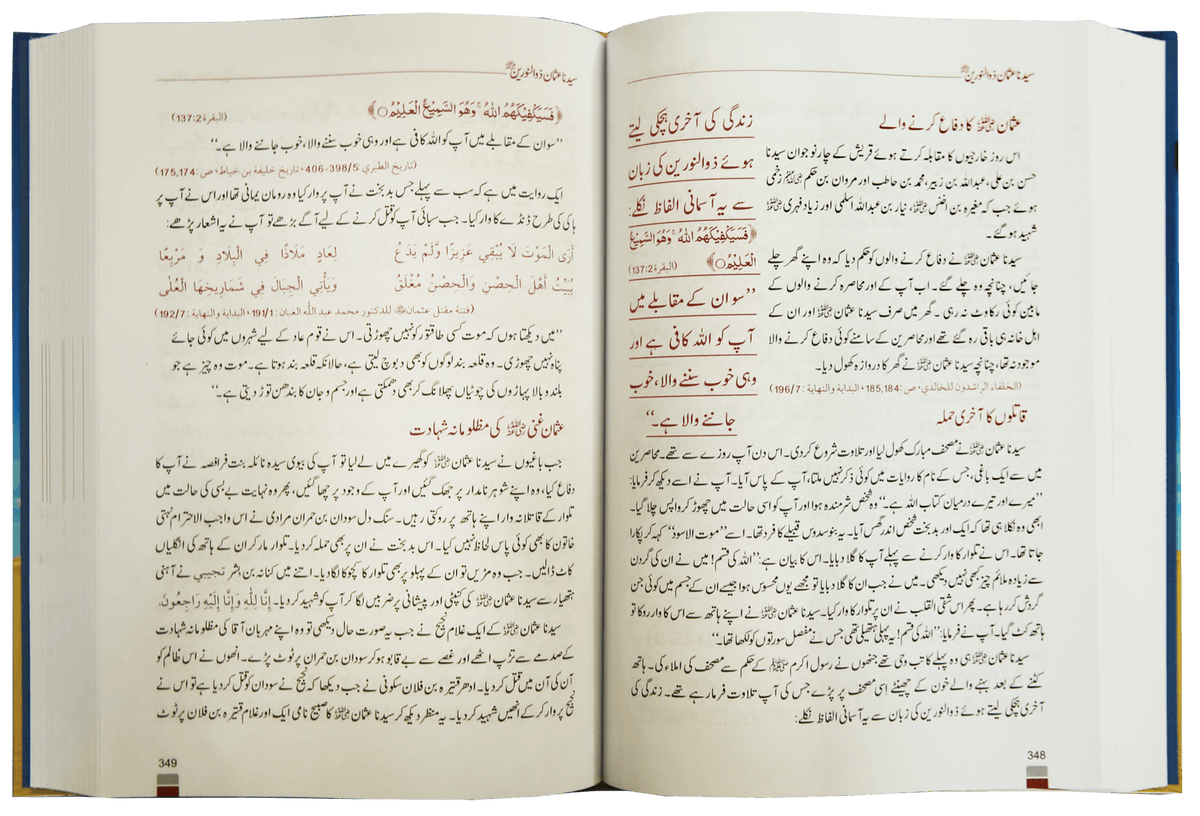 سیدنا عثمان ذوالنورین رضی اللہ عنہ
عثمان رضی اللہ عنہ کا دفاع کرنے والے
اس روز خارجیوں کا مقابلہ کرتے ہوئے قریش کے چار نوجوان سیدنا
حسن بن علی، عبداللہ بن زبیر، محمد بن حاطب اور مروان بن حکم رضی اللہ عنہم زخمی
ہوئے جب کہ مغیرہ بن اخنس رضی اللہ عنہ، نیار بن عبداللہ اسلمی اور زیاد فہری رضی اللہ عنہ
شہید ہو گئے۔
سیدنا عثمان رضی اللہ عنہ نے دفاع کرنے والوں کو حکم دیا کہ وہ اپنے گھر چلے
جائیں، چنانچہ وہ چلے گئے۔ اب آپ کے اور محاصرہ کرنے والوں کے
مابین کوئی رکاوٹ نہ رہی۔ گھر میں صرف سیدنا عثمان رضی اللہ عنہ اور ان کے
اہل خانہ ہی باقی رہ گئے تھے اور محاصرین کے سامنے کوئی دفاع کرنے والا
موجود نہ تھا، چنانچہ سیدنا عثمان رضی اللہ عنہ نے گھر کا دروازہ کھول دیا۔
(الخلفاء الراشدون للخالدي، ص: 185,184، البداية والنهاية: 196/7)
زندگی کی آخری ہچکی لیتے
ہوئے ذوالنورین کی زبان
سے یہ آسمانی الفاظ نکلے:
﴿فَسَيَكْفِيكَهُمُ اللَّهُ ۚ وَهُوَ السَّمِيعُ
الْعَلِيمُ﴾ (البقرة 137:2)
”سو ان کے مقابلے میں
آپ کو اللہ کافی ہے اور
وہی خوب سننے والا، خوب
جاننے والا ہے۔“
قاتلوں کا آخری حملہ
سیدنا عثمان رضی اللہ عنہ نے مصحف مبارک کھول لیا اور تلاوت شروع کر دی۔ اس دن آپ روزے سے تھے۔ محاصرین
میں سے ایک باغی، جس کے نام کا روایات میں کوئی ذکر نہیں ملتا، آپ کے پاس آیا۔ آپ نے اسے دیکھ کر فرمایا:
”میرے اور تیرے درمیان کتاب اللہ ہے۔“ وہ شخص شرمندہ ہوا اور آپ کو اسی حالت میں چھوڑ کر واپس چلا گیا۔
ابھی وہ نکلا ہی تھا کہ ایک اور بدبخت شخص اندر گھس آیا۔ یہ بنو سدوس قبیلے کا فرد تھا۔ اسے ”موت الاسود“ کہہ کر پکارا
جاتا تھا۔ اس نے تلوار کا وار کرنے سے پہلے آپ کا گلا دبایا۔ اس کا بیان ہے: ”اللہ کی قسم! میں نے ان کی گردن
سے زیادہ ملائم چیز کبھی نہیں دیکھی۔ میں نے جب ان کا گلا دبایا تو مجھے یوں محسوس ہوا جیسے ان کے جسم میں کوئی جن
گردش کر رہا ہے۔ پھر اس شقی القلب نے ان پر تلوار کا وار کیا۔ سیدنا عثمان رضی اللہ عنہ نے اپنے ہاتھ سے اس کا وار روکا تو
ہاتھ کٹ گیا۔ آپ نے فرمایا: ”اللہ کی قسم! یہ پہلی ہتھیلی تھی جس نے مفصل سورتوں کو لکھا تھا۔“
سیدنا عثمان رضی اللہ عنہ ہی وہ پہلے کاتب وحی تھے جنھوں نے رسول اکرم ﷺ کے حکم سے مصحف کی املاء کی۔ ہاتھ
کٹنے کے بعد بہنے والے خون کے چھینٹے اسی مصحف پر پڑے جس کی آپ تلاوت فرما رہے تھے۔ زندگی کی
آخری ہچکی لیتے ہوئے ذوالنورین کی زبان سے یہ آسمانی الفاظ نکلے:
348
سیدنا عثمان ذوالنورین رضی اللہ عنہ
﴿فَسَيَكْفِيكَهُمُ اللَّهُ ۚ وَهُوَ السَّمِيعُ الْعَلِيمُ﴾ (البقرة 137:2)
”سو ان کے مقابلے میں آپ کو اللہ کافی ہے اور وہی خوب سننے والا، خوب جاننے والا ہے۔“
(تاريخ الطبري: 398/5-406، تاريخ خليفة بن خياط، ص: 175,174)
ایک روایت میں ہے کہ سب سے پہلے جس بدبخت نے آپ پر وار کیا وہ رومان یمانی تھا اور اس نے آپ پر
ہاکی کی طرح ڈنڈے کا وار کیا۔ جب سبائی آپ کو قتل کرنے کے لیے آگے بڑھے تو آپ نے یہ اشعار پڑھے:
أَرَى الْمَوْتَ لَا يُبْقِي عَزِيزًا وَلَمْ يَدَعْ لِعَادٍ مَلَاذًا فِي الْبِلَادِ وَ مَرْبَعًا
يُبَيِّتُ أَهْلَ الْحِصْنِ وَالْحِصْنُ مُغْلَقٌ وَيَأْتِي الْجِبَالَ فِي شَمَارِيخِهَا الْعُلَى
(فتنة مقتل عثمان رضی اللہ عنہ للدكتور محمد عبد الله الغبان: 191/1، البداية والنهاية: 192/7)
”میں دیکھتا ہوں کہ موت کسی طاقتور کو نہیں چھوڑتی۔ اس نے قوم عاد کے لیے شہروں میں کوئی جائے
پناہ نہیں چھوڑی۔ وہ قلعہ بند لوگوں کو بھی دبوچ لیتی ہے، حالانکہ قلعہ بند ہوتا ہے۔ موت وہ چیز ہے جو
بلند و بالا پہاڑوں کی چوٹیاں پھلانگ کر بھی آ دھمکتی ہے اور جسم و جان کا بندھن توڑ دیتی ہے۔“
عثمان غنی رضی اللہ عنہ کی مظلومانہ شہادت
جب باغیوں نے سیدنا عثمان رضی اللہ عنہ کو گھیرے میں لے لیا تو آپ کی بیوی سیدہ نائلہ بنت فرافصہ نے آپ کا
دفاع کیا، وہ اپنے شوہر نامدار پر جھک گئیں اور آپ کے وجود پر چھا گئیں، پھر وہ نہایت بے بسی کی حالت میں
تلوار کے قاتلانہ وار اپنے ہاتھ پر روکتی رہیں۔ سنگ دل سودان بن حمران مرادی نے اس واجب الاحترام نہتی
خاتون کا بھی کوئی پاس لحاظ نہیں کیا۔ اس بدبخت نے ان پر بھی حملہ کر دیا۔ تلوار مار کر ان کے ہاتھ کی انگلیاں
کاٹ ڈالیں۔ جب وہ مڑیں تو ان کے پہلو پر بھی تلوار کا کچوکا لگا دیا۔ اتنے میں کنانہ بن بشر تجیبی نے آہنی
ہتھیار سے سیدنا عثمان رضی اللہ عنہ کی کنپٹی اور پیشانی پر ضربیں لگا کر آپ کو شہید کر دیا۔ إِنَّا لِلَّهِ وَإِنَّا إِلَيْهِ رَاجِعُونَ.
سیدنا عثمان رضی اللہ عنہ کے ایک غلام نجیح نے جب یہ صورت حال دیکھی تو وہ اپنے مہربان آقا کی مظلومانہ شہادت
کے صدمے سے تڑپ اٹھے اور غصے سے بے قابو ہو کر سودان بن حمران پر ٹوٹ پڑے۔ انھوں نے اس ظالم کو
آن کی آن میں قتل کر دیا۔ ادھر قتیرہ بن فلان سکونی نے جب دیکھا کہ نجیح نے سودان کو قتل کر دیا ہے تو اس نے
نجیح پر وار کر کے انھیں شہید کر دیا۔ یہ منظر دیکھ کر سیدنا عثمان رضی اللہ عنہ کا صبیح نامی ایک اور غلام قتیرہ بن فلان پر ٹوٹ
349